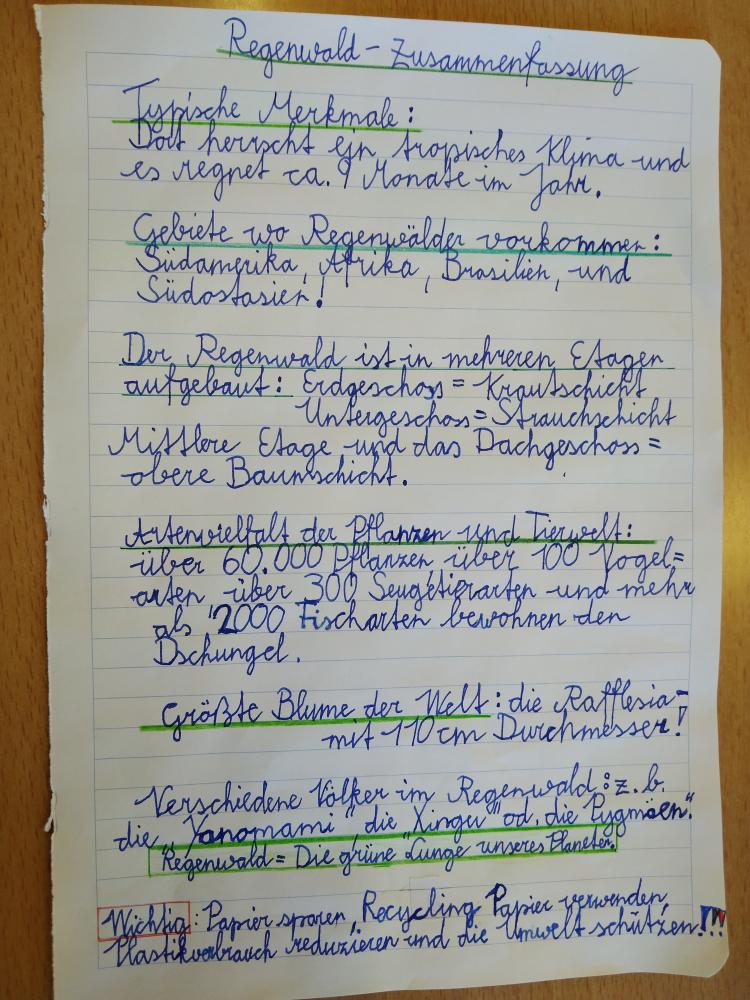 Regenwald - Zusammenfassung
Typische Merkmale:
Dort herrscht ein tropisches Klima und
es regnet ca. 9 Monate im Jahr.
Gebiete wo Regenwälder vorkommen:
Südamerika, Afrika, Brasilien, und
Südostasien!
Der Regenwald ist in mehreren Etagen
aufgebaut: Erdgeschoss = Krautschicht
Untergeschoss = Strauchschicht
Mittlere Etage und das Dachgeschoss =
obere Baumschicht.
Artenvielfalt der Pflanzen und Tierwelt:
über 60.000 Pflanzen, über 100 Vogel=
arten über 300 Seugetierarten und mehr
als 2000 Fischarten bewohnen den
Dschungel.
Größte Blume der Welt: die Rafflesia -
mit 110 cm Durchmesser!
Verschiedene Völker im Regenwald: z.b.
die „Yanomami" die „Xingu" od. die Pygmäen".
"Regenwald = Die grüne Lunge unseres Planeten.
Wichtig: Papier sparen, Recycling Papier verwenden,
Plastikverbrauch reduzieren und die Umwelt schützen!!!